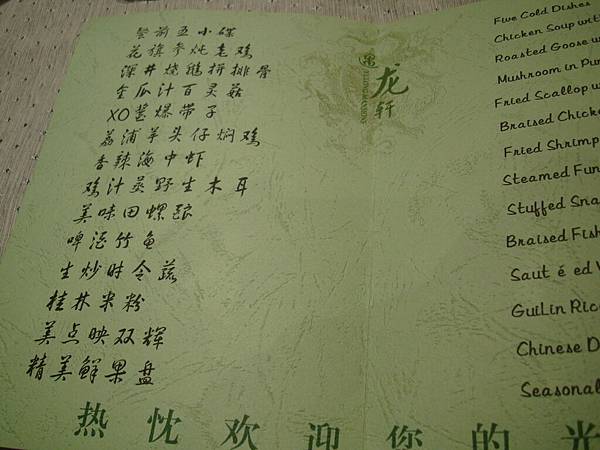 餐前五小碟
花旗参炖老鸡
深井烧鹅拼排骨
金瓜汁百灵菇
XO酱爆带子
荔浦芋头仔焖鸡
香辣海中虾
鸡汁蒸野生木耳
美味田螺酿
啤酒竹鱼
生炒时令蔬
桂林米粉
美点映双辉
精美鲜果盘
龙轩
Five Cold Dishes
Chicken Soup wit
Roasted Goose w
Mushroom in Pu
Fried Scallop w
Braised Chick
Fried Shrimp
Steamed Fun
Stuffed Sna
Braised Fish
Saut é ed V
GuiLin Ric
Chinese D
Seasonal
热忱欢迎您的光